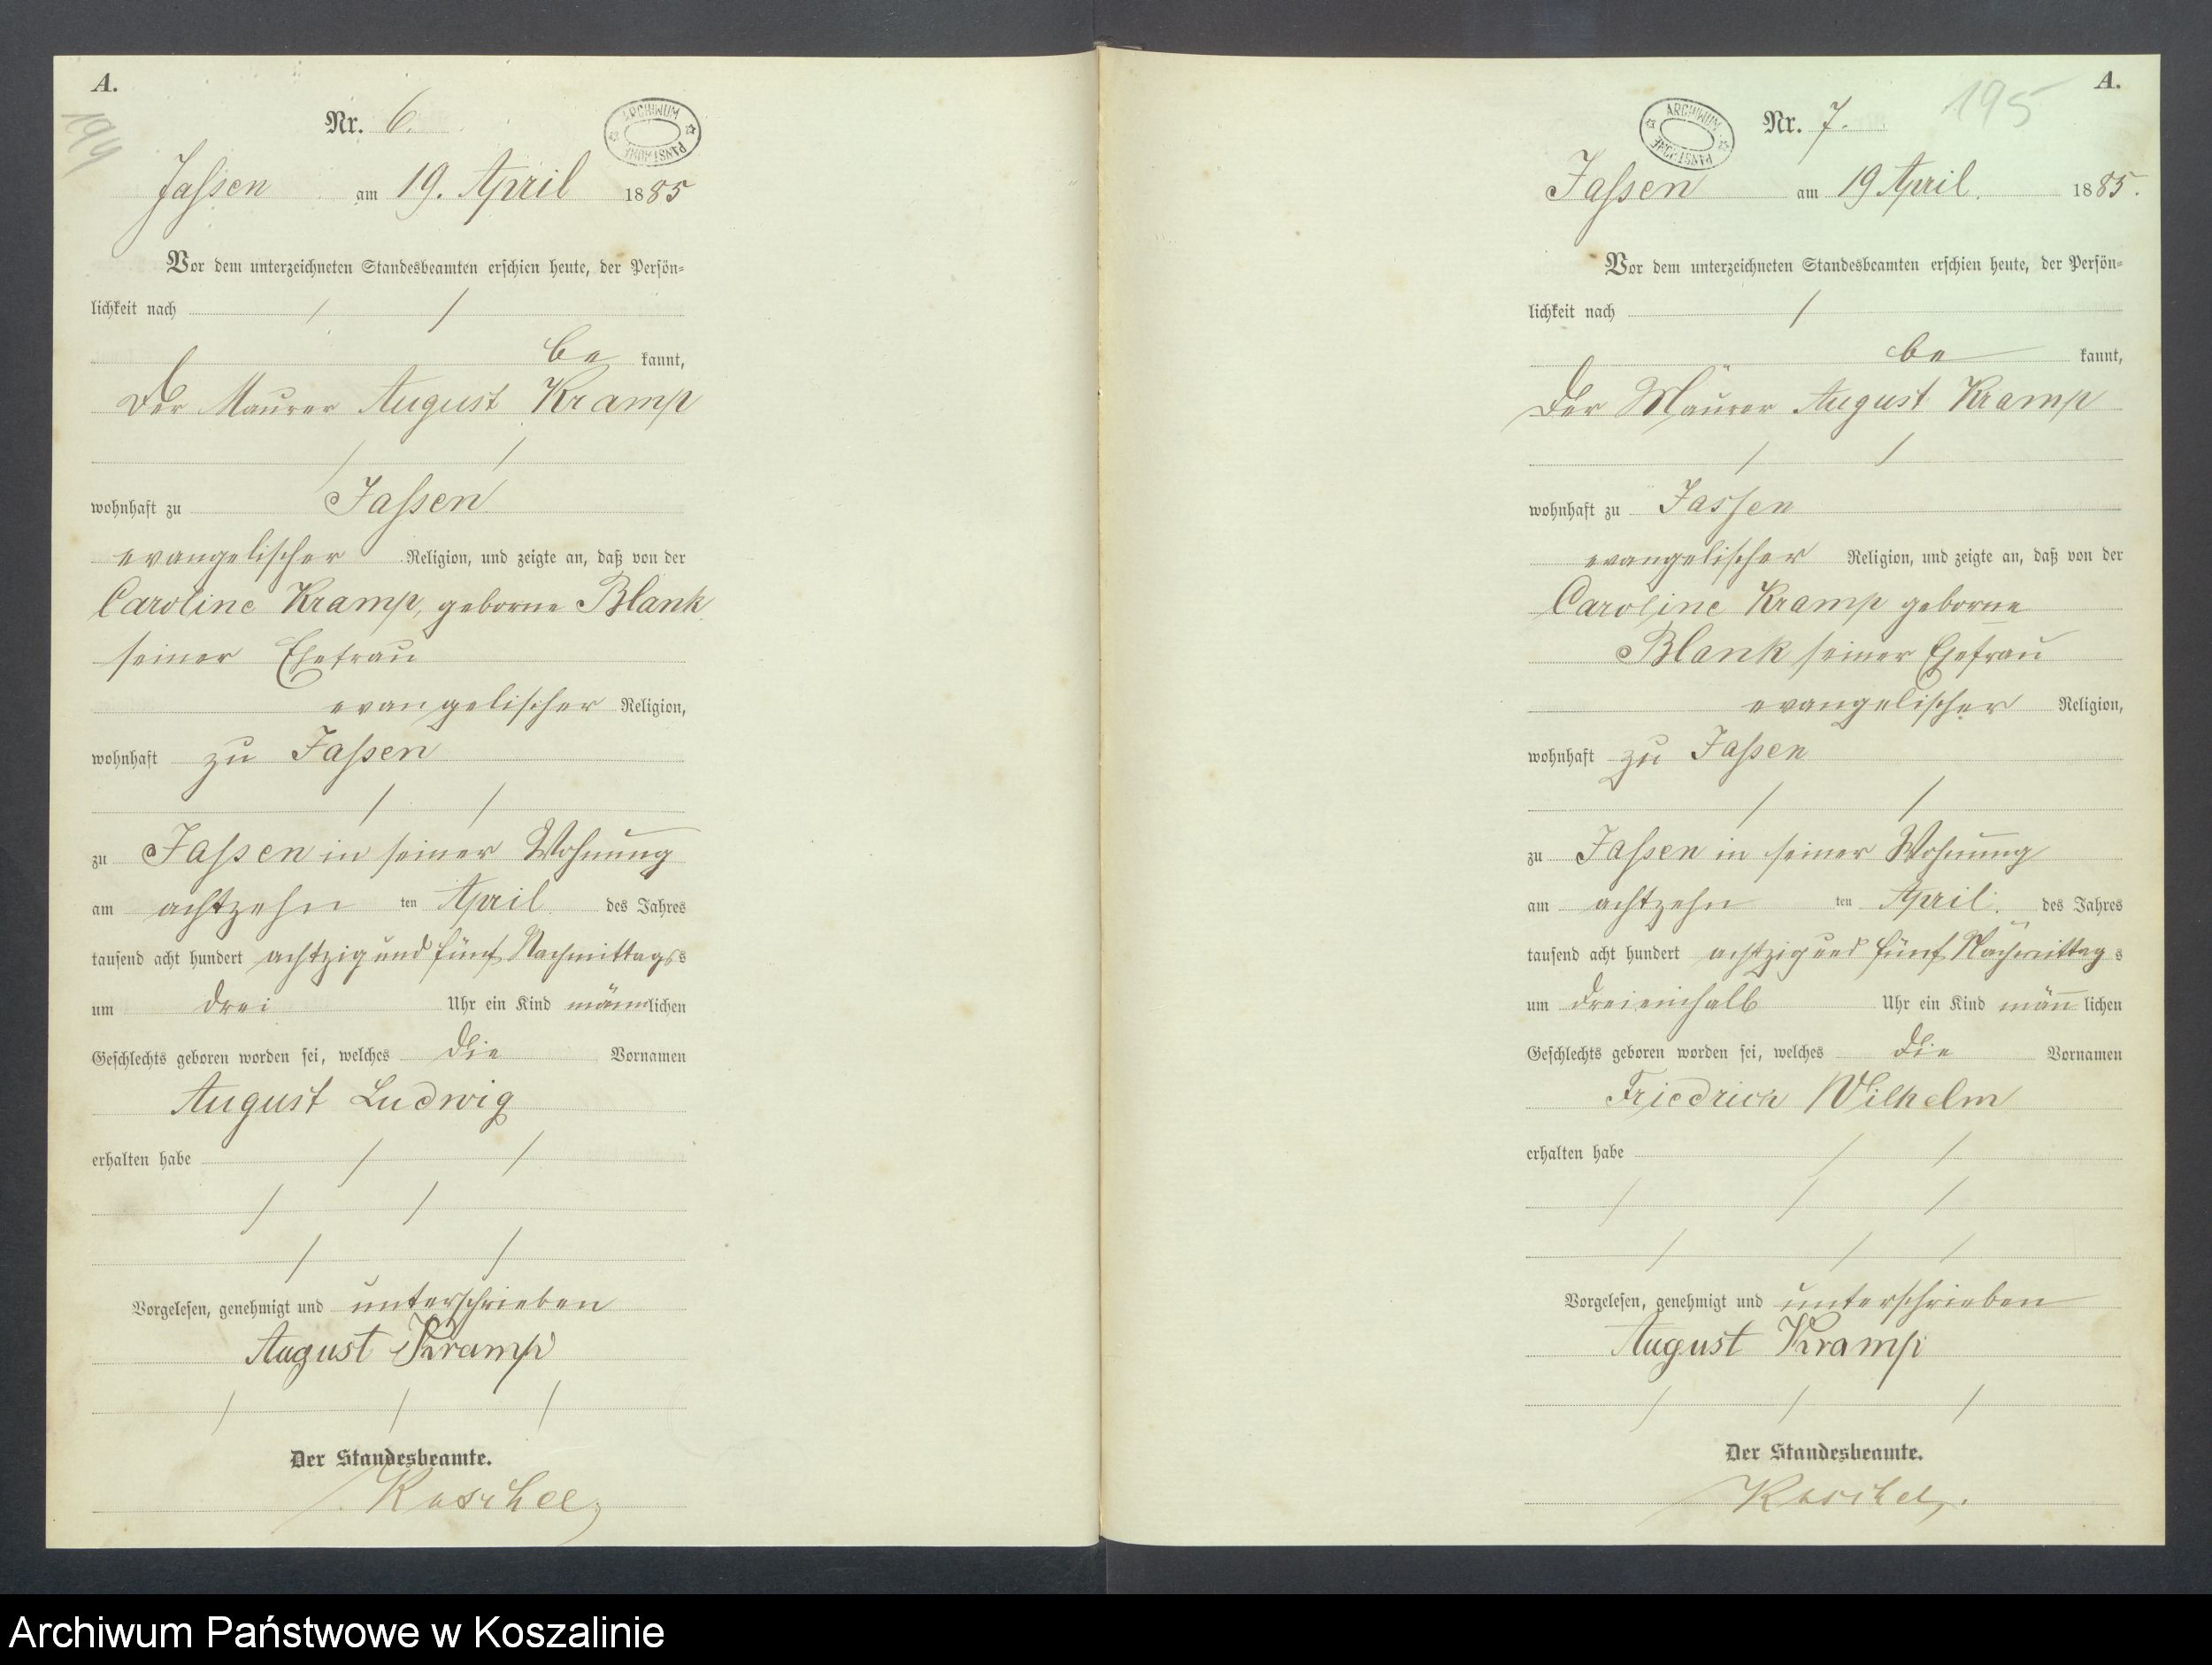 A.
194
Nr. 6.
ARCHIWUM PAŃSTWOWE
Jassen am 19. April 1885
Vor dem unterzeichneten Standesbeamten erschien heute, der Persön-
lichkeit nach / /
be kannt,
der Maurer August Kramp
/ /
wohnhaft zu Jassen
evangelischer Religion, und zeigte an, daß von der
Caroline Kramp, geborne Blank
seiner Ehefrau
evangelischer Religion,
wohnhaft zu Jassen
/ /
zu Jassen in seiner Wohnung
am achtzehn ten April des Jahres
tausend acht hundert achtzig und fünf Nachmittags
um drei Uhr ein Kind männlichen
Geschlechts geboren worden sei, welches die Vornamen
August Ludwig
erhalten habe / /
/ /
/ /
Vorgelesen, genehmigt und unterschrieben
August Kramp
/ / /
Der Standesbeamte.
A.
195
Nr. 7.
ARCHIWUM PAŃSTWOWE
Jassen am 19 April. 1885.
Vor dem unterzeichneten Standesbeamten erschien heute, der Persön-
lichkeit nach /
be kannt,
der Maurer August Kramp
/ /
wohnhaft zu Jassen
evangelischer Religion, und zeigte an, daß von der
Caroline Kramp geborne
Blank seiner Ehefrau
evangelischer Religion,
wohnhaft zu Jassen
/ /
zu Jassen in seiner Wohnung
am achtzehn ten April. des Jahres
tausend acht hundert achtzig und fünf Nachmittags
um dreieinhalb Uhr ein Kind männlichen
Geschlechts geboren worden sei, welches die Vornamen
Friedrich Wilhelm
erhalten habe / /
/ / /
/ / /
Vorgelesen, genehmigt und unterschrieben
August Kramp
/ / /
Der Standesbeamte.
Archiwum Państwowe w Koszalinie